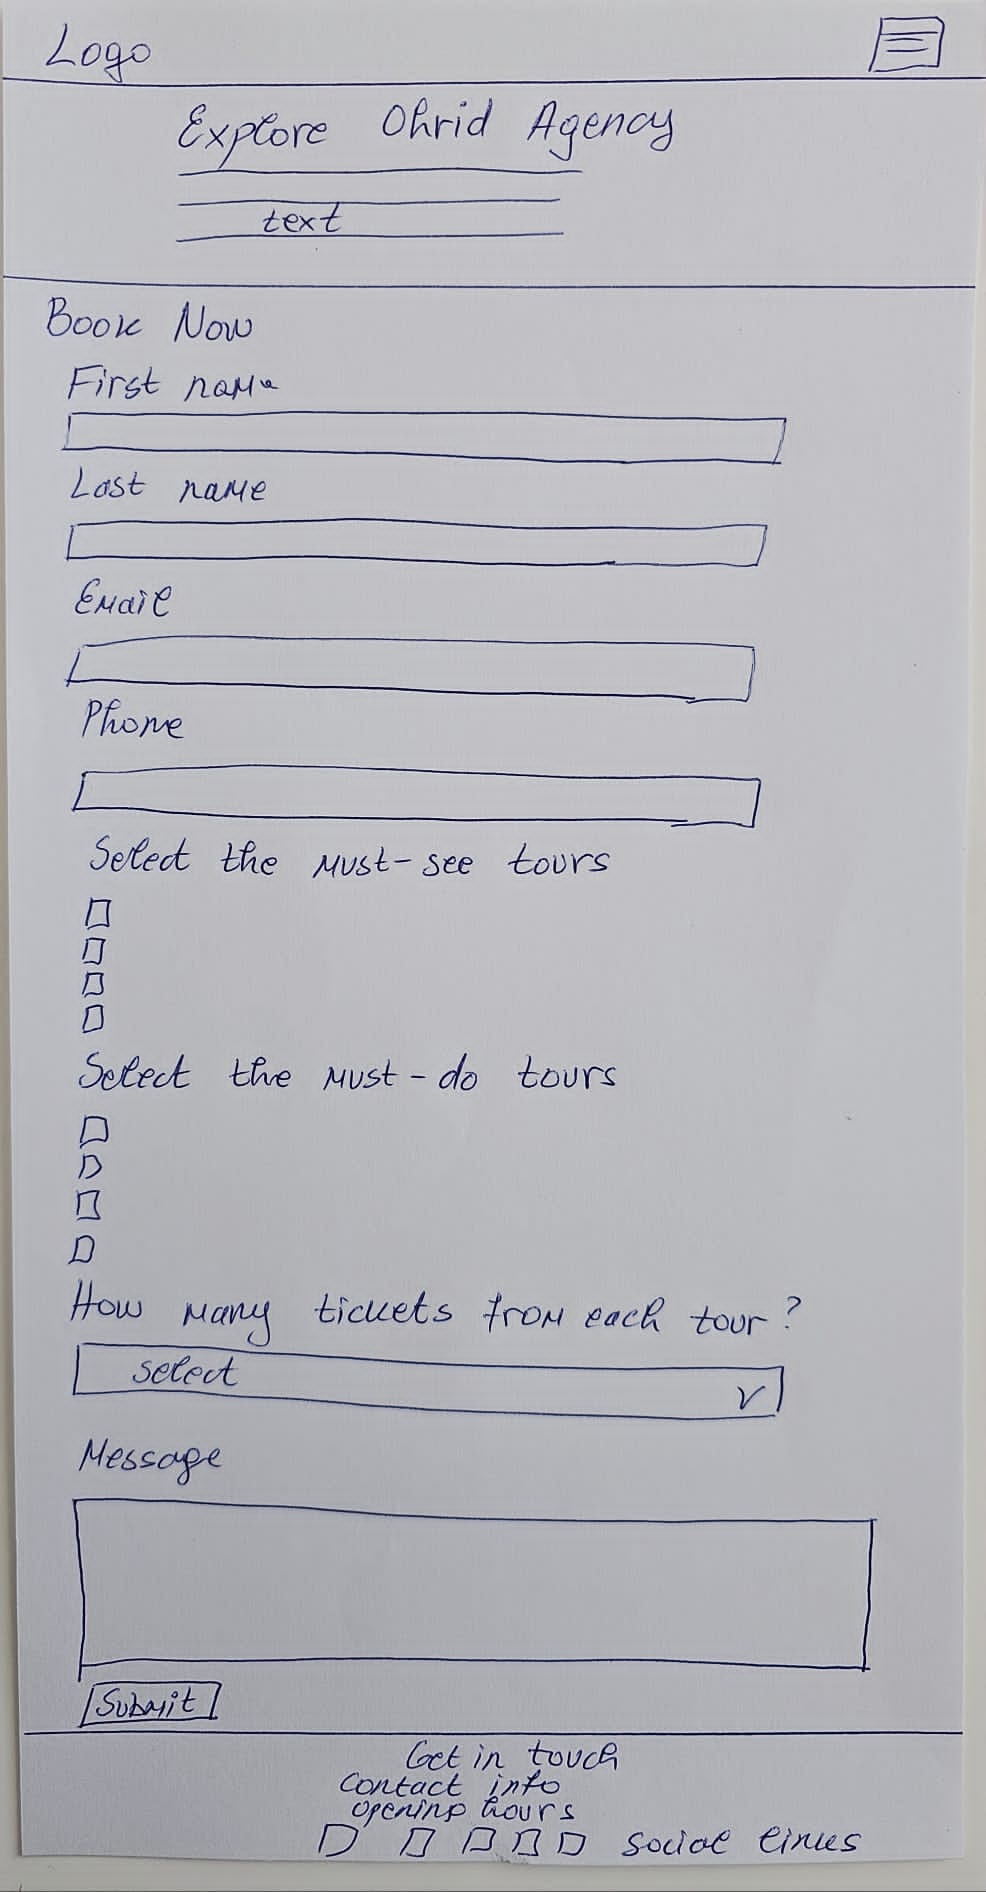 Logo
Explore Ohrid Agency
text
Book Now
First name
Last name
Email
Phone
Select the must-see tours
Select the must-do tours
How many tickets from each tour?
select
Message
Submit
Get in touch
contact info
opening hours
social links